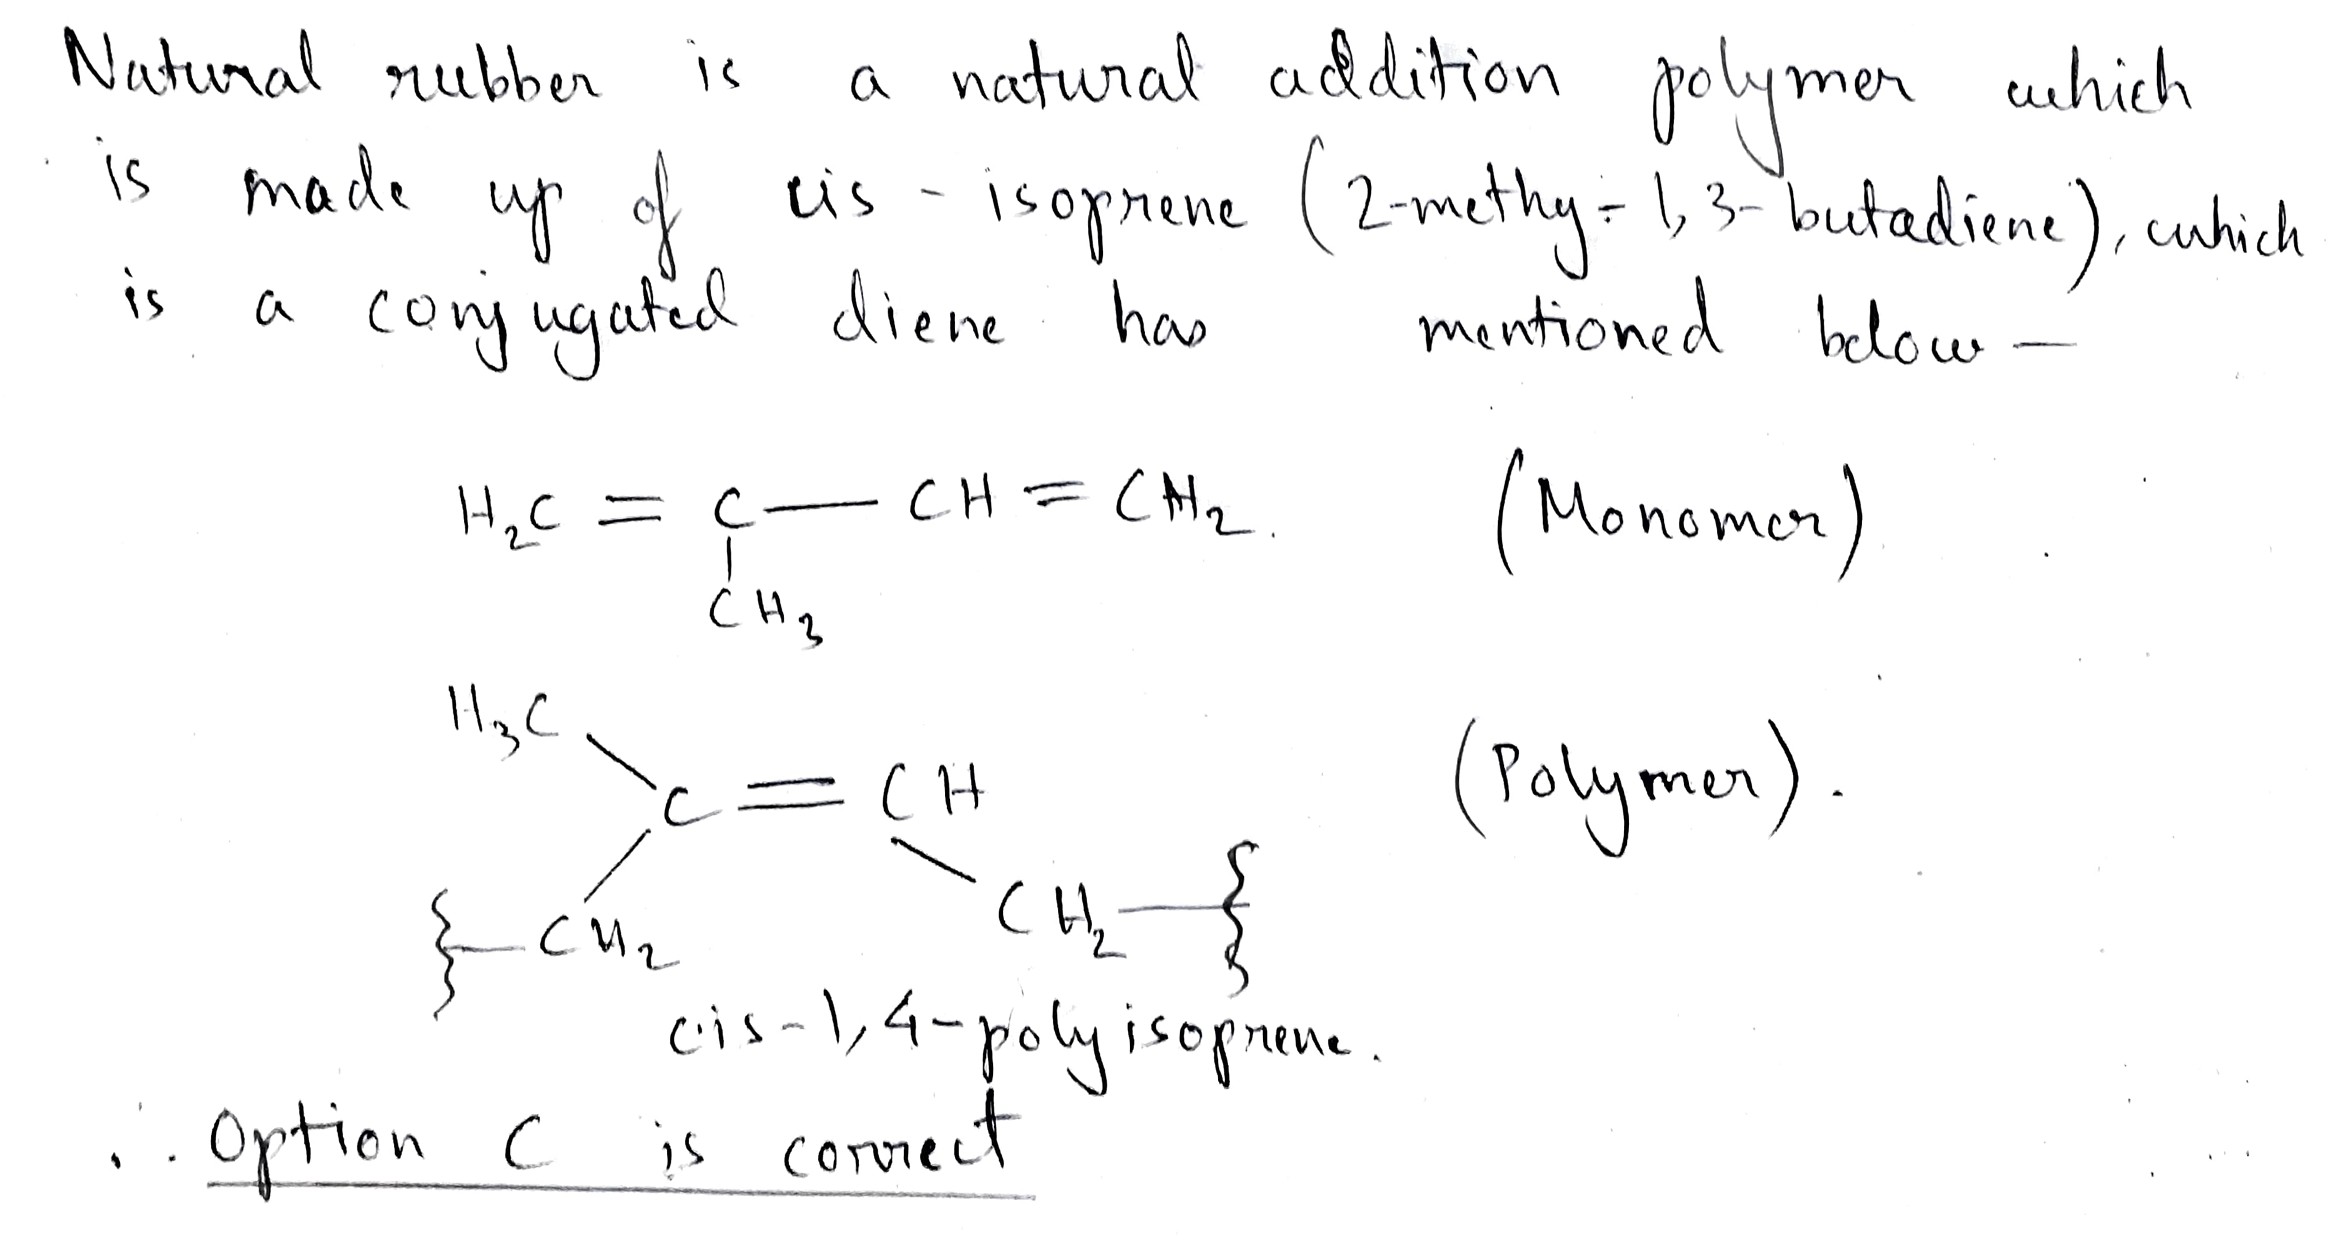 Natural rubber is a natural addition polymer which
is made up of cis - isoprene (2-methy-1,3-butadiene), which
is a conjugated diene has mentioned below —
H₂C = C — CH = CH₂. (Monomer)
CH₃
H₃C
C = CH (Polymer).
CH₂ CH₂
cis-1,4-polyisoprene.
∴ Option C is correct